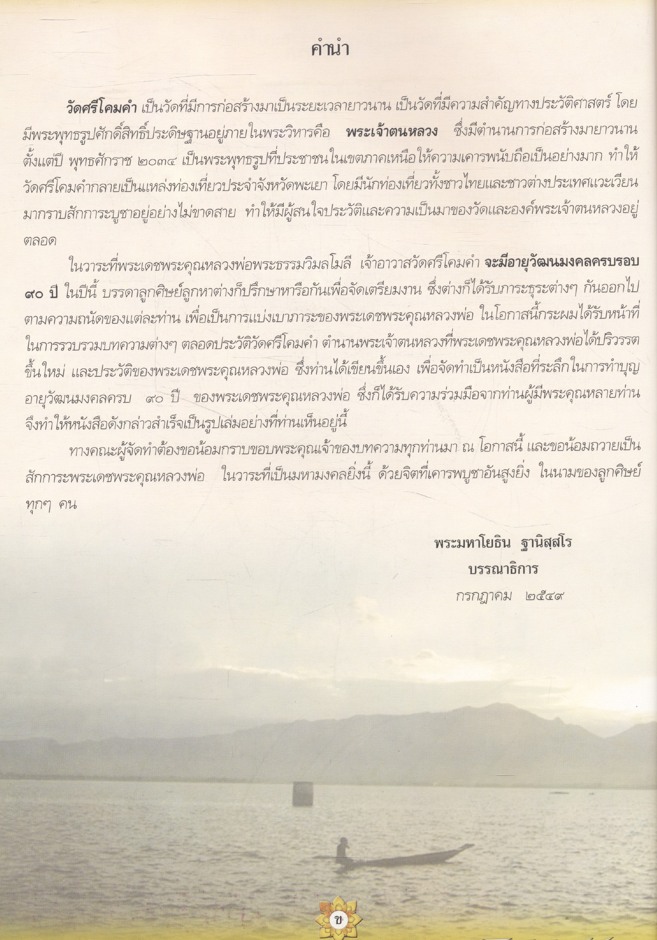 คำนำ
วัดศรีโคมคำ เป็นวัดที่มีการก่อสร้างมาเป็นระยะเวลายาวนาน เป็นวัดที่มีความสำคัญทางประวัติศาสตร์ โดย
มีพระพุทธรูปศักดิ์สิทธิ์ประดิษฐานอยู่ภายในพระวิหารคือ พระเจ้าตนหลวง ซึ่งมีตำนานการก่อสร้างมายาวนาน
ตั้งแต่ปี พุทธศักราช ๒๐๓๔ เป็นพระพุทธรูปที่ประชาชนในเขตภาคเหนือให้ความเคารพนับถือเป็นอย่างมาก ทำให้
วัดศรีโคมคำกลายเป็นแหล่งท่องเที่ยวประจำจังหวัดพะเยา โดยมีนักท่องเที่ยวทั้งชาวไทยและชาวต่างประเทศแวะเวียน
มากราบสักการะบูชาอยู่อย่างไม่ขาดสาย ทำให้มีผู้สนใจประวัติและความเป็นมาของวัดและองค์พระเจ้าตนหลวงอยู่
ตลอด
ในวาระที่พระเดชพระคุณหลวงพ่อพระธรรมวิมลโมลี เจ้าอาวาสวัดศรีโคมคำ จะมีอายุวัฒนมงคลครบรอบ
๙๐ ปี ในปีนี้ บรรดาลูกศิษย์ลูกหาต่างก็ปรึกษาหารือกันเพื่อจัดเตรียมงาน ซึ่งต่างก็ได้รับภาระธุระต่างๆ กันออกไป
ตามความถนัดของแต่ละท่าน เพื่อเป็นการแบ่งเบาภาระของพระเดชพระคุณหลวงพ่อ ในโอกาสนี้กระผมได้รับหน้าที่
ในการรวบรวมบทความต่างๆ ตลอดประวัติวัดศรีโคมคำ ตำนานพระเจ้าตนหลวงที่พระเดชพระคุณหลวงพ่อได้ปริวรรต
ขึ้นใหม่ และประวัติของพระเดชพระคุณหลวงพ่อ ซึ่งท่านได้เขียนขึ้นเอง เพื่อจัดทำเป็นหนังสือที่ระลึกในการทำบุญ
อายุวัฒนมงคลครบ ๙๐ ปี ของพระเดชพระคุณหลวงพ่อ ซึ่งก็ได้รับความร่วมมือจากท่านผู้มีพระคุณหลายท่าน
จึงทำให้หนังสือดังกล่าวสำเร็จเป็นรูปเล่มอย่างที่ท่านเห็นอยู่นี้
ทางคณะผู้จัดทำต้องขอน้อมกราบขอบพระคุณเจ้าของบทความทุกท่านมา ณ โอกาสนี้ และขอน้อมถวายเป็น
สักการะพระเดชพระคุณหลวงพ่อ ในวาระที่เป็นมหามงคลยิ่งนี้ ด้วยจิตที่เคารพบูชาอันสูงยิ่ง ในนามของลูกศิษย์
ทุกๆ คน
พระมหาโยธิน ฐานิสฺสโร
บรรณาธิการ
กรกฎาคม ๒๕๔๙
ข